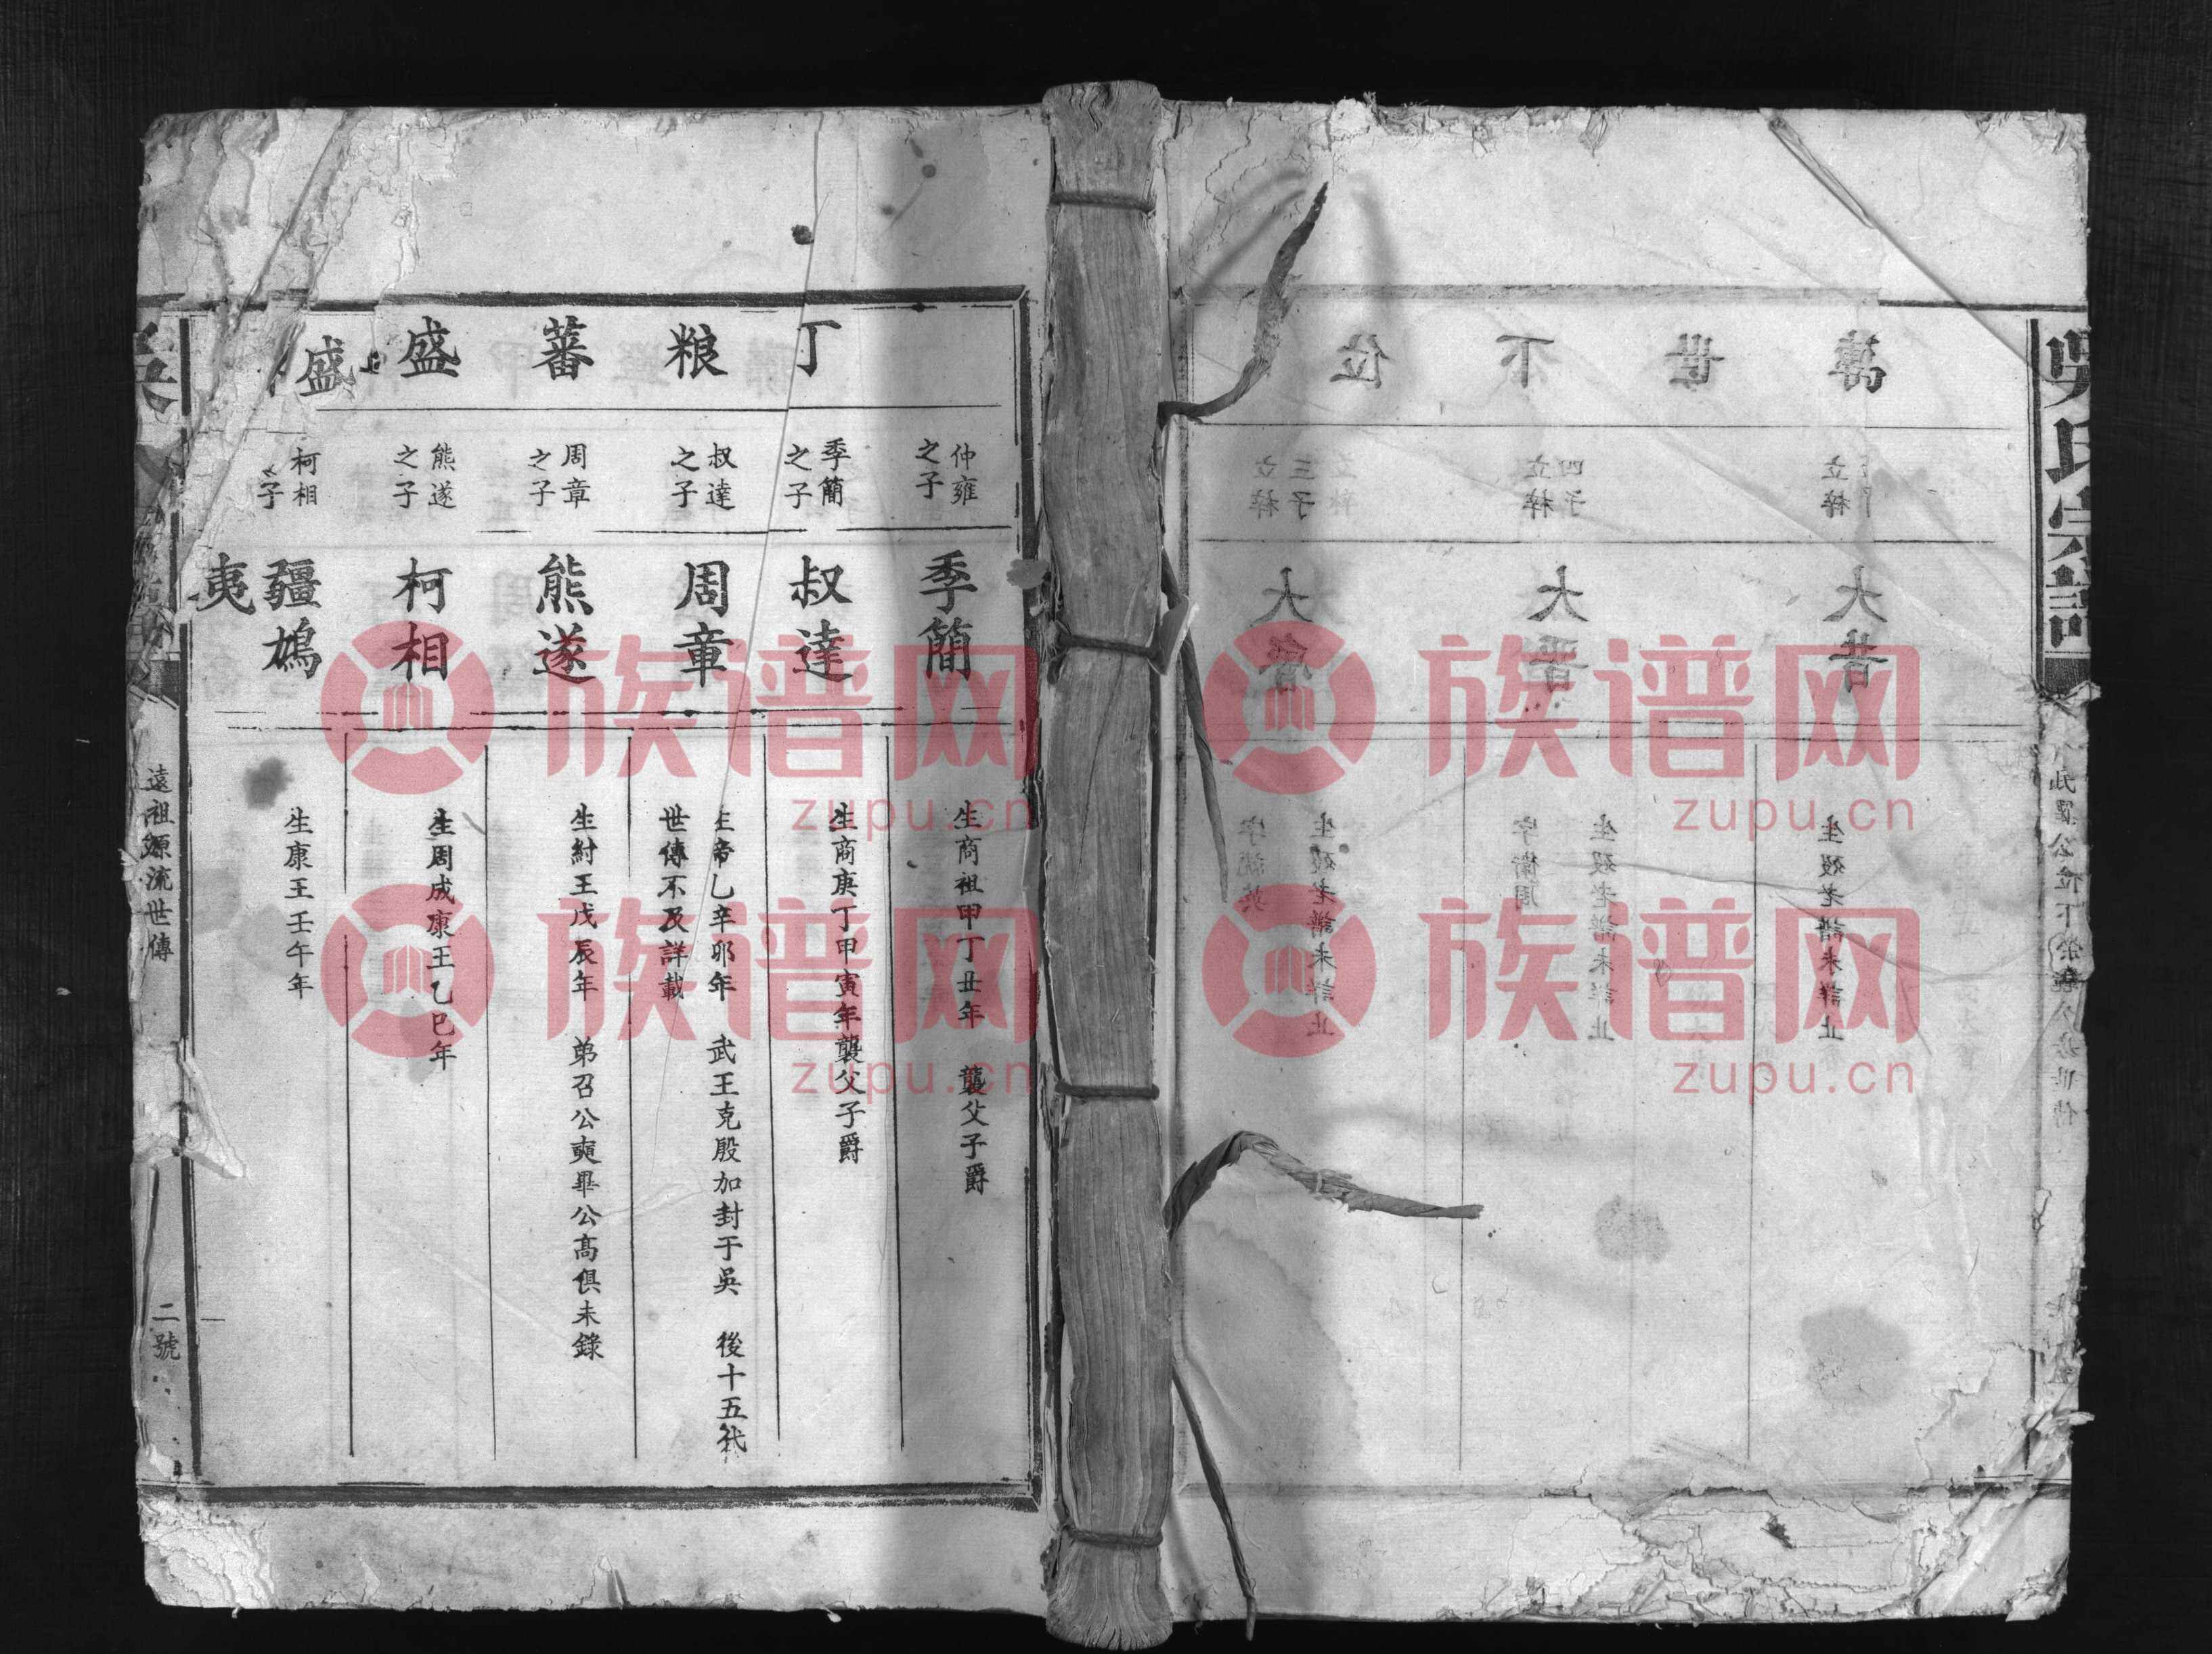 吳氏宗譜
丁粮蕃盛
盛
仲雍
之子
季簡
生商祖甲丁丑年 襲父子爵
季簡
之子
叔達
生商庚丁甲寅年襲父子爵
叔達
之子
周章
生帝乙辛卯年 武王克殷加封于吳 後十五代
世傳不及詳載
周章
之子
熊遂
生紂王戊辰年 弟召公奭畢公高俱未錄
熊遂
之子
柯相
生周成康王乙巳年
柯相
之子
疆鳩
夷
生康王壬午年
遠祖源流世傳
二號
萬世下位
立梓
大昔
生歿老譜未詳止
四子
立梓
大晋
生歿老譜未詳止
字衛周
三子
立梓
大
生歿老譜未詳止
族谱网
zupu.cn
族谱网
zupu.cn
族谱网
zupu.cn
族谱网
zupu.cn